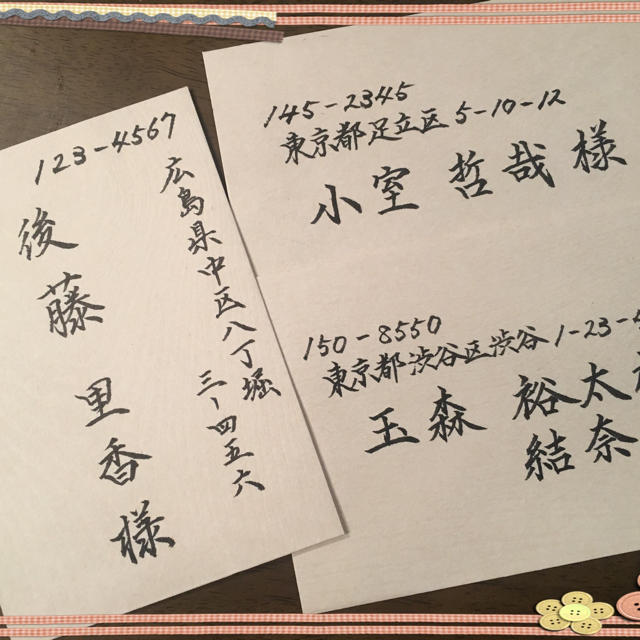 123-4567
広島県中区八丁堀
三-四五六
後藤 里香様
145-2345
東京都足立区5-10-12
小室 哲哉 様
150-8550
東京都渋谷区渋谷1-23-
玉森 裕太
結奈